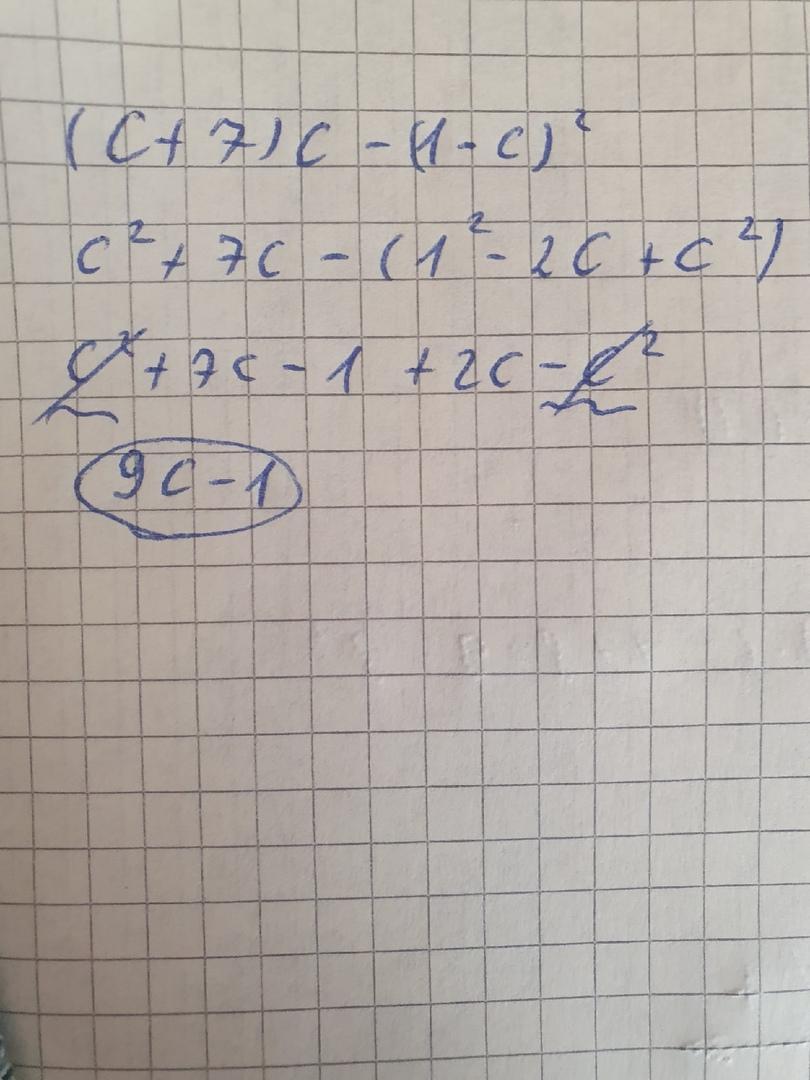 (c+7)c-(1-c)²
c²+7c-(1²-2c+c²)
c²+7c-1+2c-c²
9c-1